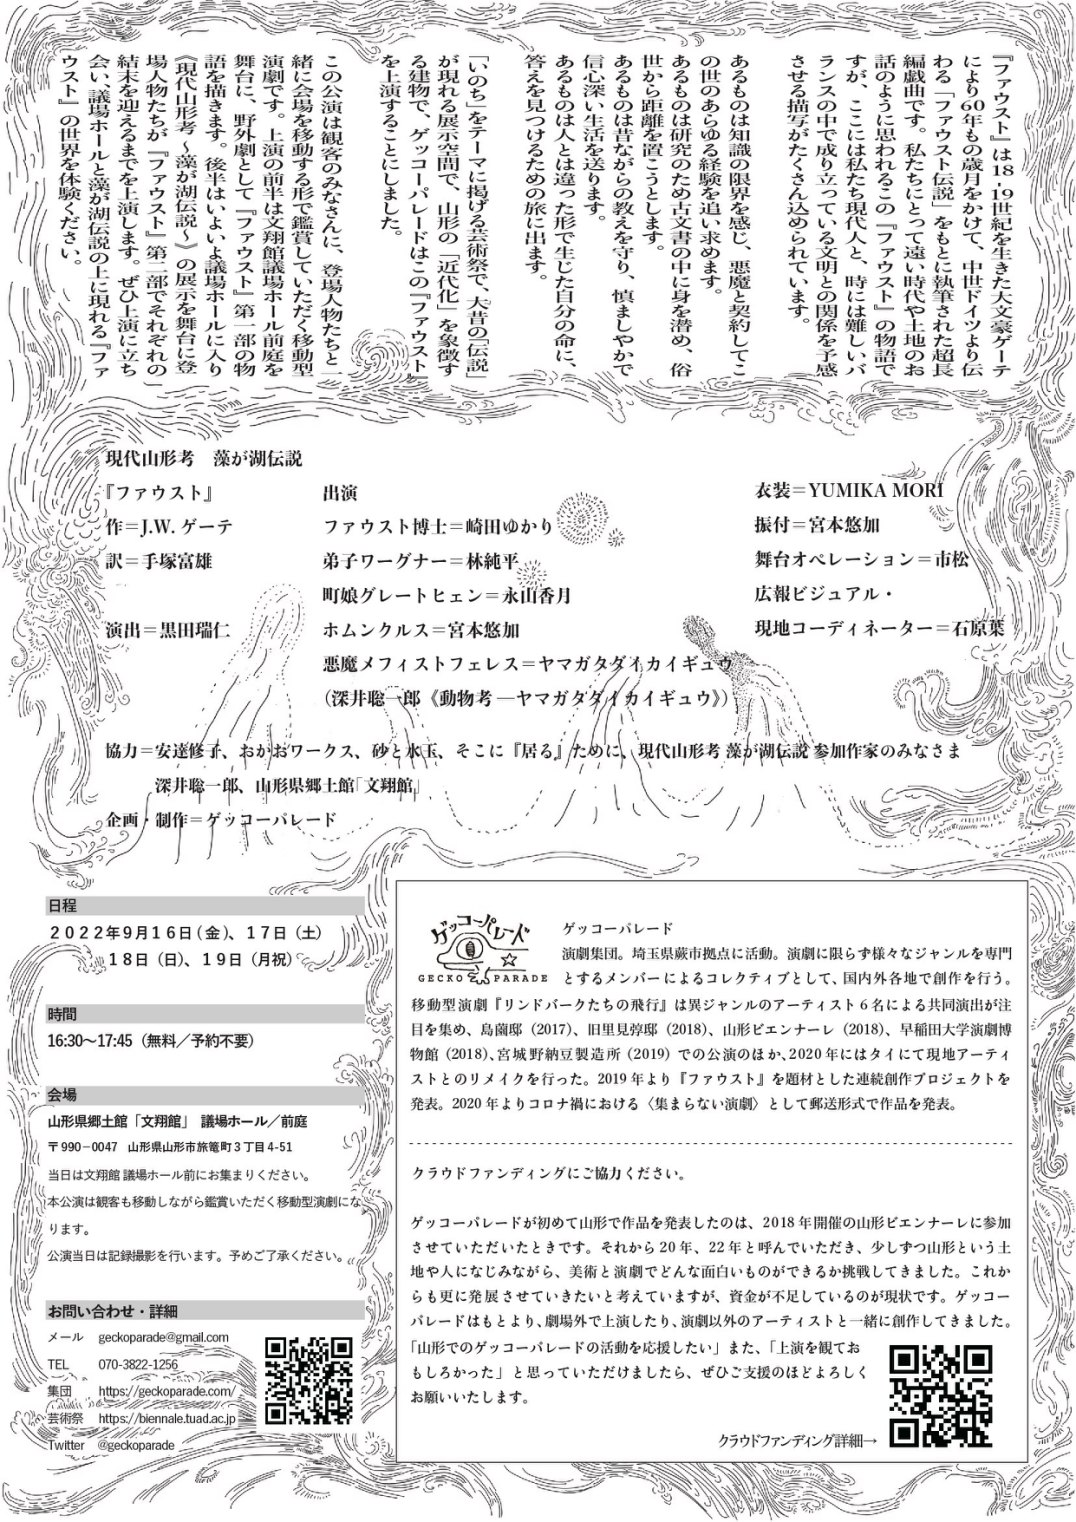 『ファウスト』は18・19世紀を生きた大文豪ゲーテ
により60年もの歳月をかけて、中世ドイツより伝
わる「ファウスト伝説」をもとに執筆された超長
編戯曲です。私たちにとって遠い時代や土地のお
話のように思われるこの『ファウスト』の物語で
すが、ここには私たち現代人と、時には難しいバ
ランスの中で成り立っている文明との関係を予感
させる描写がたくさん込められています。
あるものは知識の限界を感じ、悪魔と契約してこ
の世のあらゆる経験を追い求めます。
あるものは研究のため古文書の中に身を潜め、俗
世から距離を置こうとします。
あるものは昔ながらの教えを守り、慎ましやかで
信心深い生活を送ります。
あるものは人とは違った形で生じた自分の命に、
答えを見つけるための旅に出ます。
「いのち」をテーマに掲げる芸術祭で、大昔の「伝説」
が現れる展示空間で、山形の「近代化」を象徴す
る建物で、ゲッコーパレードはこの『ファウスト』
を上演することにしました。
この公演は観客のみなさんに、登場人物たちと一
緒に会場を移動する形で鑑賞していただく移動型
演劇です。上演の前半は文翔館議場ホール前庭を
舞台に、野外劇として『ファウスト』第一部の物
語を描きます。後半はいよいよ議場ホールに入り
《現代山形考 ～藻が湖伝説～》の展示を舞台に登
場人物たちが『ファウスト』第二部でそれぞれの
結末を迎えるまでを上演します。ぜひ上演に立ち
会い、議場ホールと藻が湖伝説の上に現れる『ファ
ウスト』の世界を体験ください。
現代山形考　藻が湖伝説
『ファウスト』
作＝J.W. ゲーテ
訳＝手塚富雄
演出＝黒田瑞仁
出演
ファウスト博士＝崎田ゆかり
弟子ワーグナー＝林純平
町娘グレートヒェン＝永山香月
ホムンクルス＝宮本悠加
悪魔メフィストフェレス＝ヤマガタダイカイギュウ
（深井聡一郎《動物考 ―ヤマガタダイカイギュウ》）
衣装＝YUMIKA MORI
振付＝宮本悠加
舞台オペレーション＝市松
広報ビジュアル・
現地コーディネーター＝石原葉
協力＝安達修子、おかおワークス、砂と水玉、そこに『居る』ために、現代山形考 藻が湖伝説 参加作家のみなさま
深井聡一郎、山形県郷土館「文翔館」
企画・制作＝ゲッコーパレード
日程
２０２２年９月１６日（金）、１７日（土）
１８日（日）、１９日（月祝）
時間
16:30〜17:45（無料／予約不要）
会場
山形県郷土館「文翔館」 議場ホール／前庭
〒990−0047　山形県山形市旅篭町３丁目4-51
当日は文翔館 議場ホール前にお集まりください。
本公演は観客も移動しながら鑑賞いただく移動型演劇にな
ります。
公演当日は記録撮影を行います。予めご了承ください。
お問い合わせ・詳細
メール　geckoparade@gmail.com
TEL　070-3822-1256
集団　https://geckoparade.com/
芸術祭　https://biennale.tuad.ac.jp
Twitter　@geckoparade
ゲッコーパレード
GECKO PARADE
ゲッコーパレード
演劇集団。埼玉県蕨市拠点に活動。演劇に限らず様々なジャンルを専門
とするメンバーによるコレクティブとして、国内外各地で創作を行う。
移動型演劇『リンドバークたちの飛行』は異ジャンルのアーティスト６名による共同演出が注
目を集め、島薗邸（2017）、旧里見弴邸（2018）、山形ビエンナーレ（2018）、早稲田大学演劇博
物館（2018）、宮城野納豆製造所（2019）での公演のほか、2020年にはタイにて現地アーティ
ストとのリメイクを行った。2019年より『ファウスト』を題材とした連続創作プロジェクトを
発表。2020年よりコロナ禍における〈集まらない演劇〉として郵送形式で作品を発表。
クラウドファンディングにご協力ください。
ゲッコーパレードが初めて山形で作品を発表したのは、2018年開催の山形ビエンナーレに参加
させていただいたときです。それから20年、22年と呼んでいただき、少しずつ山形という土
地や人になじみながら、美術と演劇でどんな面白いものができるか挑戦してきました。これか
らも更に発展させていきたいと考えていますが、資金が不足しているのが現状です。ゲッコー
パレードはもとより、劇場外で上演したり、演劇以外のアーティストと一緒に創作してきました。
「山形でのゲッコーパレードの活動を応援したい」また、「上演を観てお
もしろかった」と思っていただけましたら、ぜひご支援のほどよろしく
お願いいたします。
クラウドファンディング詳細→